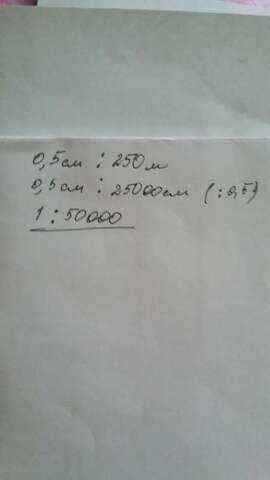 0,5см : 250м
0,5см : 25000см (: 0,5)
1 : 50000